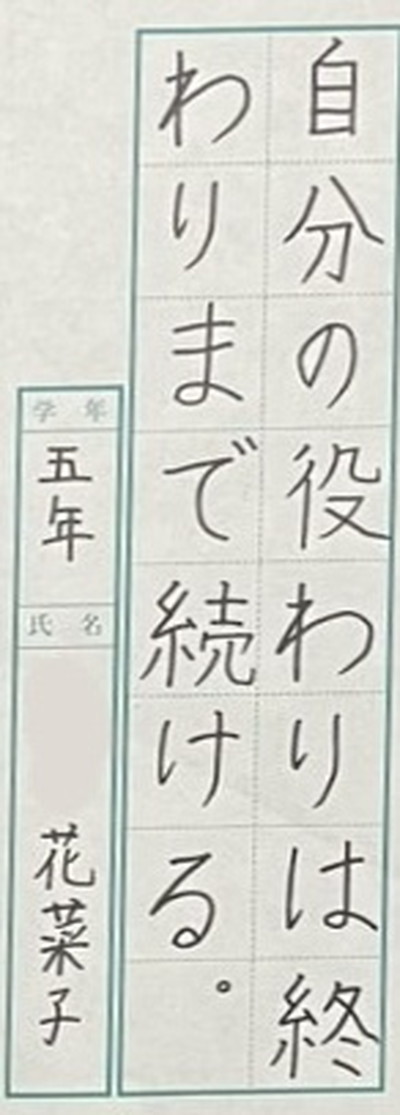 自分の役わりは終
わりまで続ける。
学年
五年
氏名
花菜子